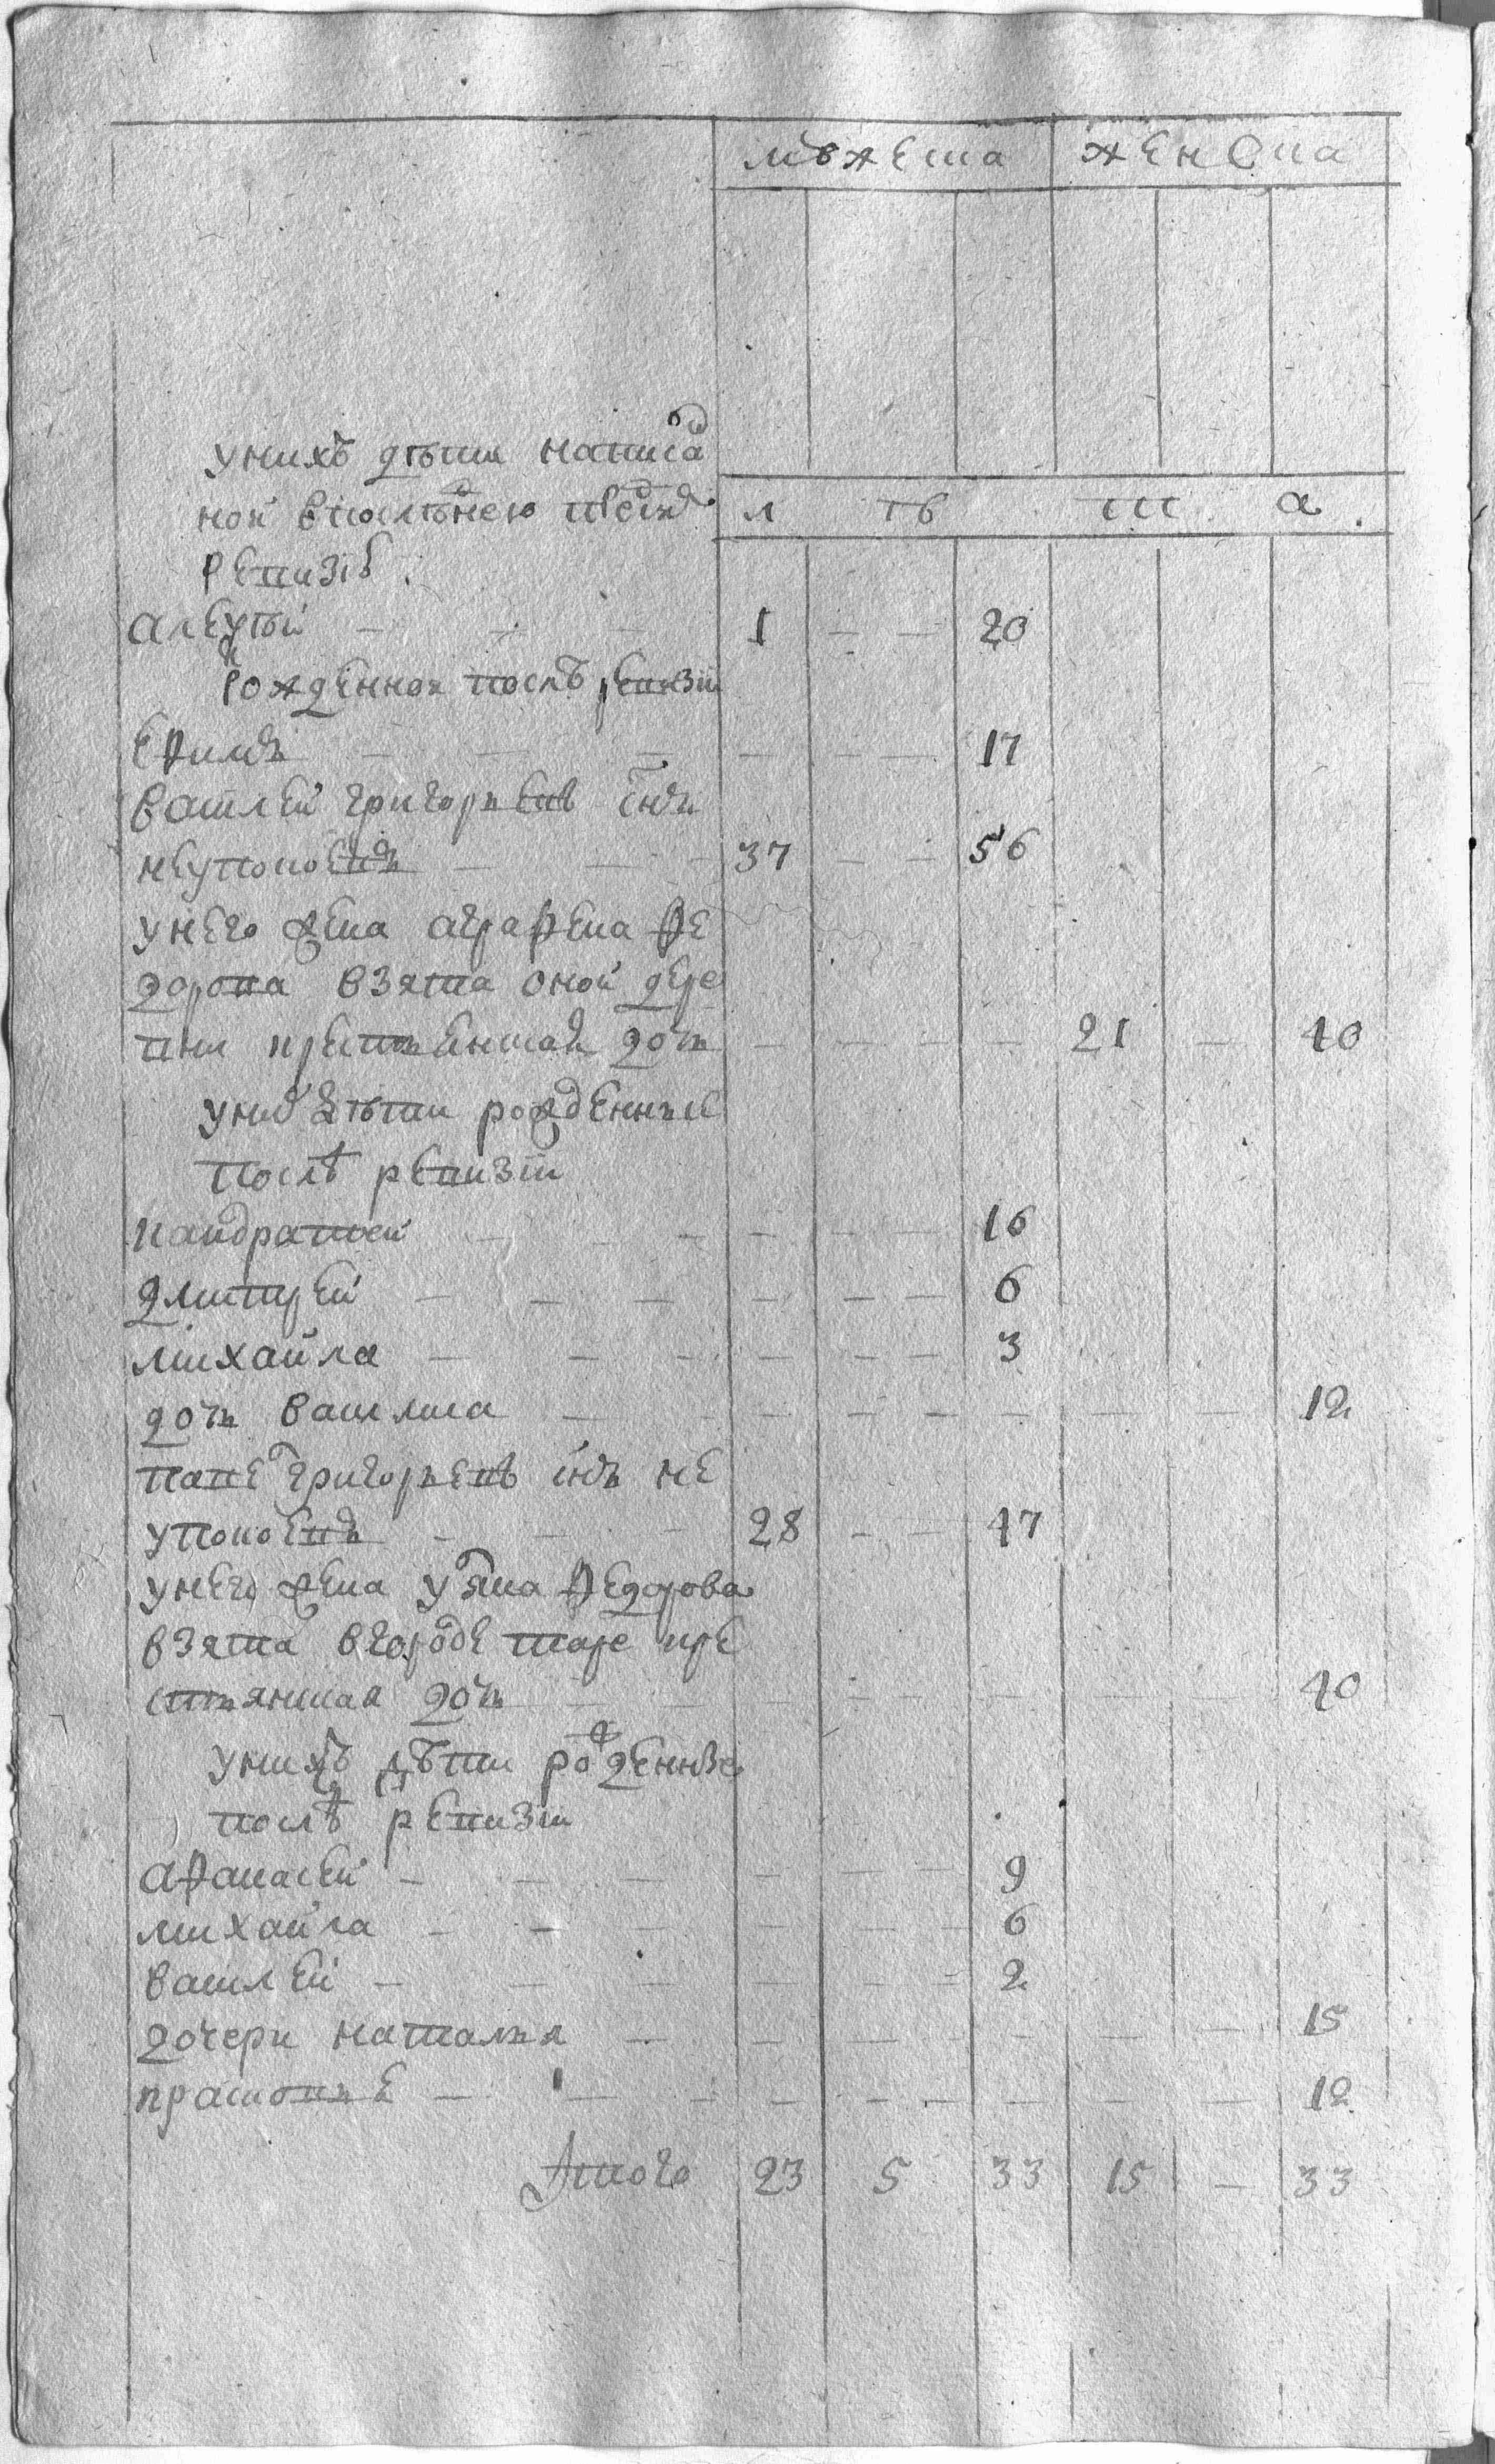 мужеска женска
у нихъ дѣти написа
ной в последнею пред сим
ревизѣ
л ѣ т а
алексѣй — — — 1 — — 20
рожденной послѣ ревизiи
ефимъ — — — — — — 17
василей григорьевъ сынъ
— — — 37 — — 56
у него жена аграфена фе
дорова взята оной дере
вни крестьенская дочь — — — — 21 — 40
у них дѣти рожденные
послѣ ревизiи
кандратей — — — — — — 16
дмитрей — — — — — — 6
михайла — — — — — — 3
дочь василиса — — — — — — 12
григорьевъ сынъ не
— — — 28 — — 47
у него жена Федорова
взята в городе кре
стьянская дочь — — — — — — 40
у нихъ дѣти рожденые
послѣ ревизiи
афанасей — — — — — — 9
михайла — — — — — — 6
василей — — — — — — 2
дочери наталья — — — — — — 15
прасковье — — — — — — — — 12
Итого 23 5 33 15 — 33